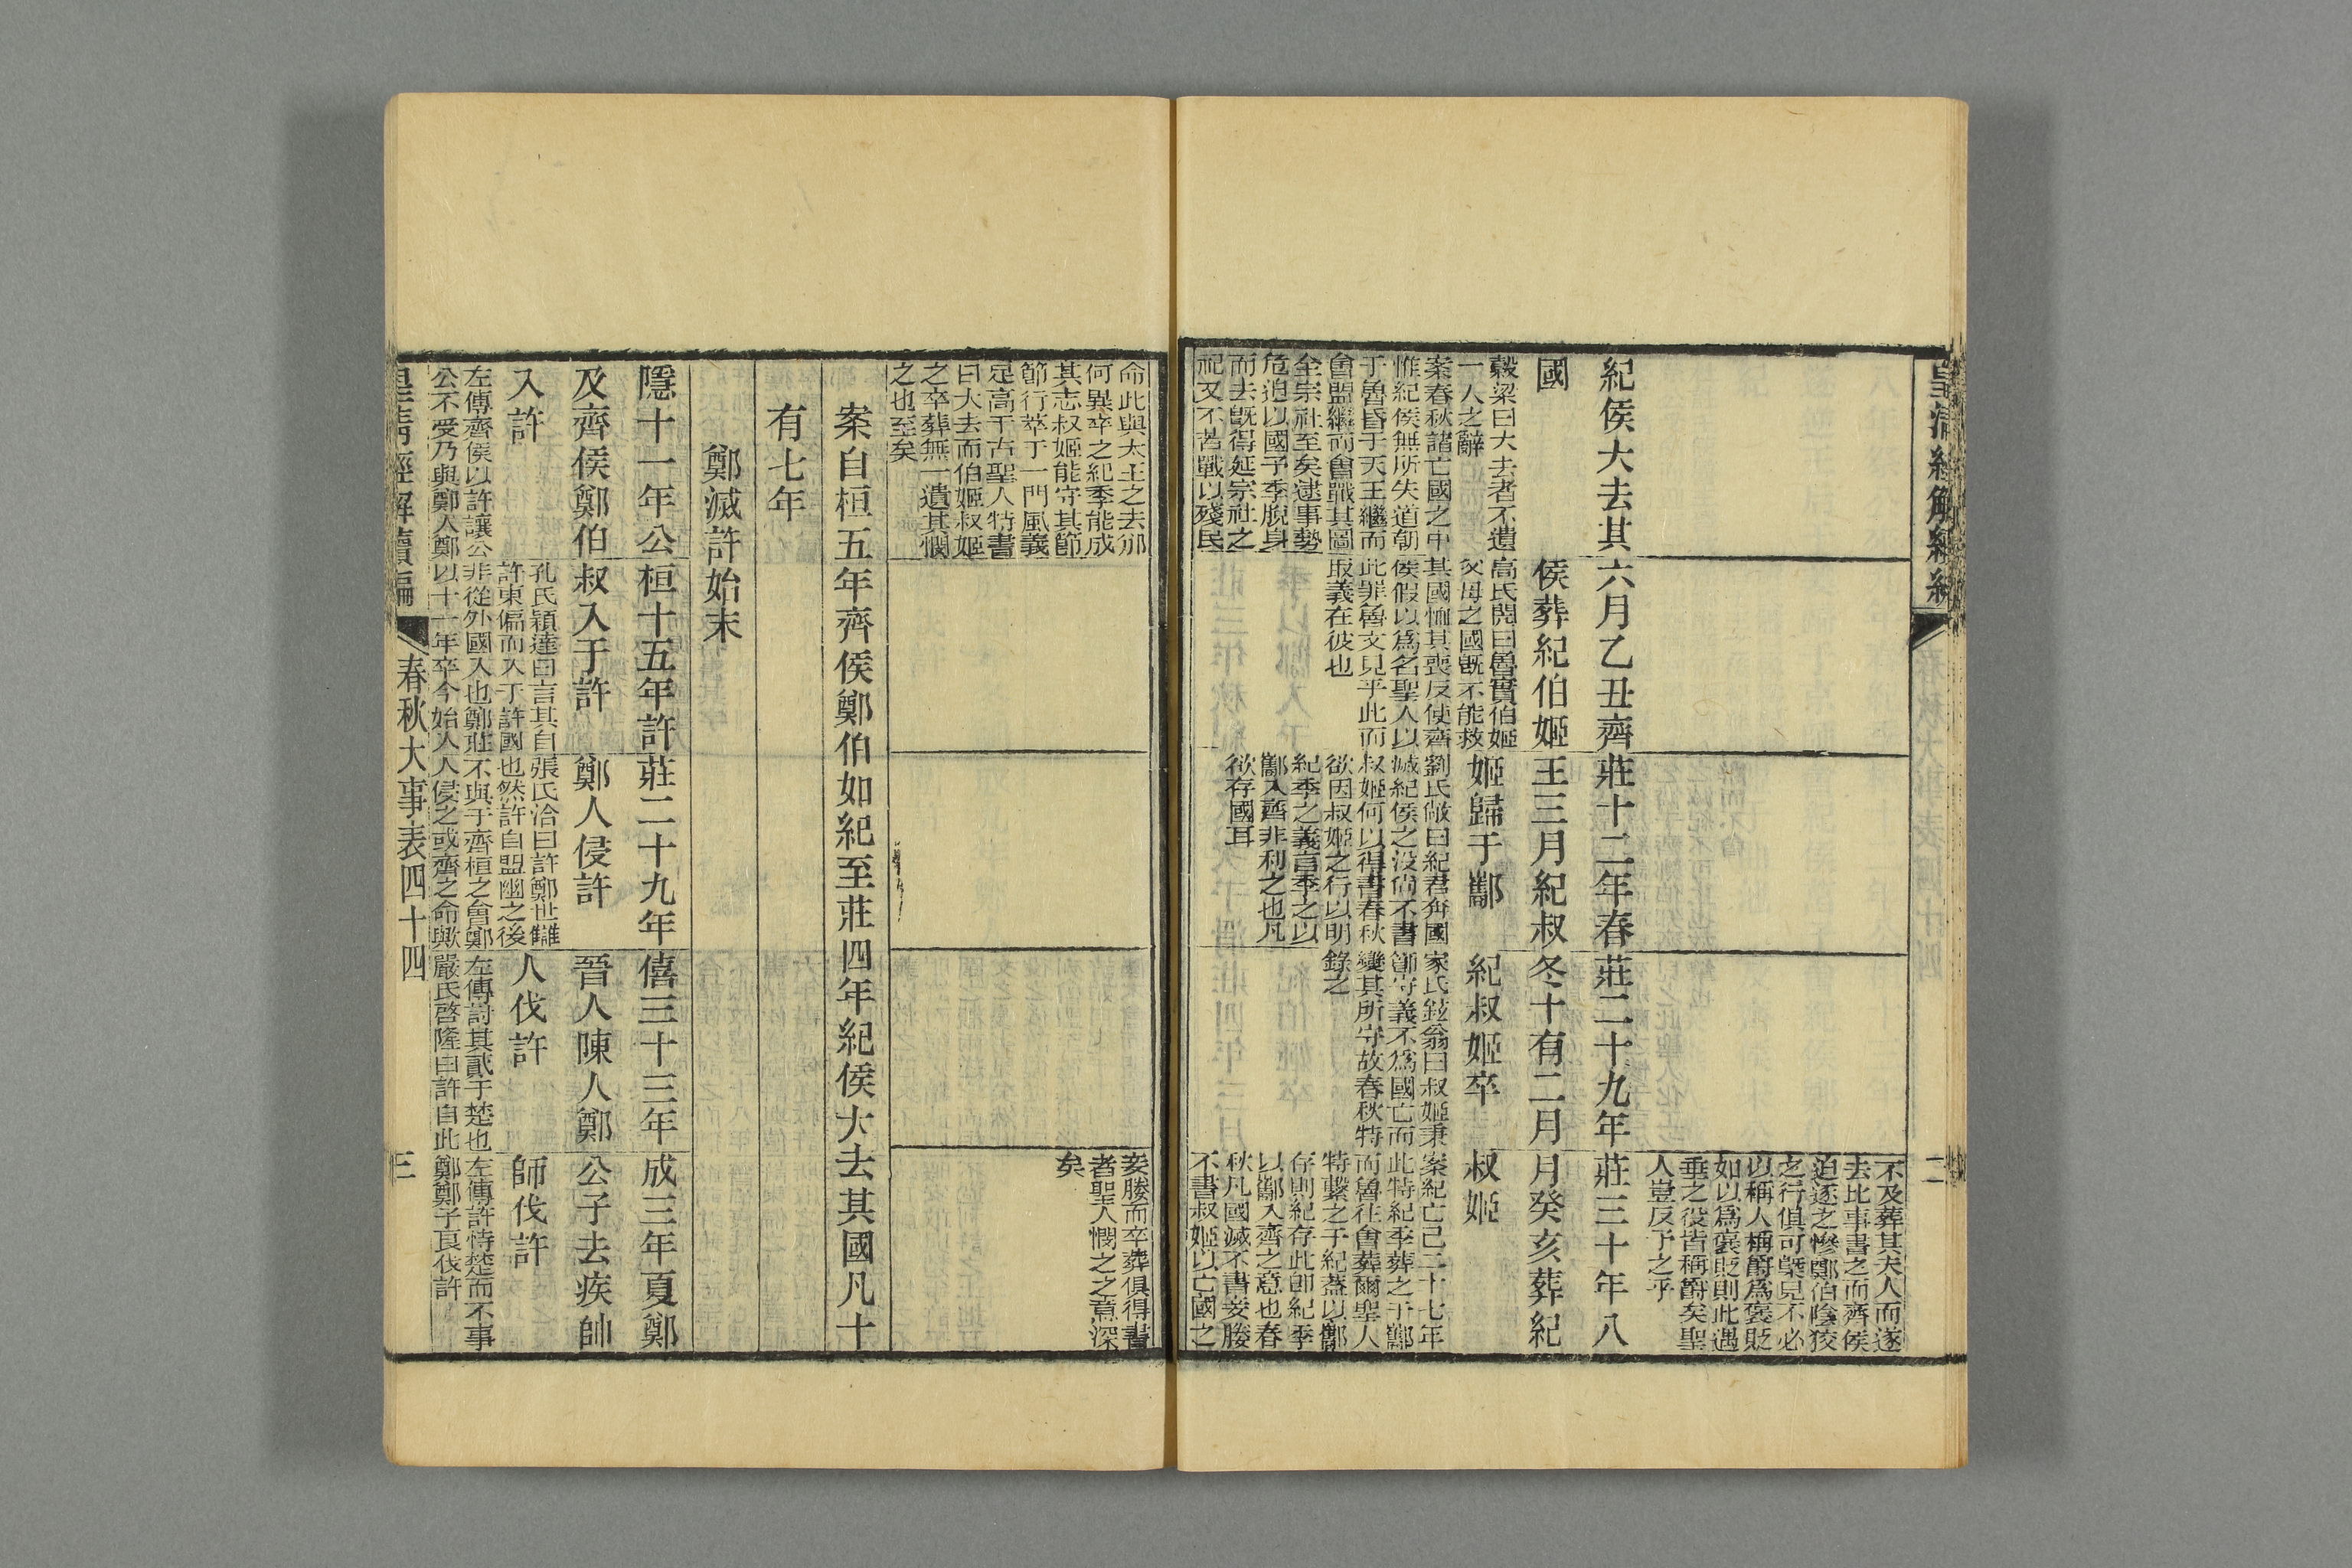 皇清經解經編
二
不及葬其夫人而遂
去比事書之而齊侯
迫逐之慘鄭伯陰狡
之行俱可槩見不必
以稱人稱爵爲褒貶
如以爲褒貶則此遇
垂之役皆稱爵矣聖
人豈反予之乎
紀侯大去其
國
穀梁曰大去者不遺
一人之辭
案春秋諸亡國之中
惟紀侯無所失道朝
于魯昏于天王繼而
會盟繼而會戰其圖
全宗社至矣逮事勢
危迫以國予季脫身
而去既得延宗社之
祀又不苦戰以殘民
六月乙丑齊
侯葬紀伯姬
高氏閌曰魯實伯姬
父母之國既不能救
其國恤其喪反使齊
侯假以爲名聖人以
此罪魯文見乎此而
取義在彼也
莊十二年春
王三月紀叔
姬歸于酅
劉氏敞曰紀君奔國
滅紀侯之没尚不書
叔姬何以得書春秋
欲因叔姬之行以明
紀季之義言季之以
酅入齊非利之也凡
欲存國耳
莊二十九年
冬十有二月
紀叔姬卒
家氏鉉翁曰叔姬秉
節守義不爲國亡而
變其所守故春秋特
錄之
莊三十年八
月癸亥葬紀
叔姬
案紀亡已二十七年
此特紀季葬之于酅
而魯往會葬爾聖人
特繫之于紀蓋以酅
存則紀存此卽紀季
以酅入齊之意也春
秋凡國滅不書妾媵
不書叔姬以亡國之
命此與太王之去邠
何異卒之紀季能成
其志叔姬能守其節
節行萃于一門風義
足高于古聖人特書
曰大去而伯姬叔姬
之卒葬無一遺其憫
之也至矣
妾媵而卒葬俱得書
者聖人憫之之意深
矣
案自桓五年齊侯鄭伯如紀至莊四年紀侯大去其國凡十
有七年
鄭滅許始末
隱十一年公
及齊侯鄭伯
入許
左傳齊侯以許讓公
公不受乃與鄭人鄭
桓十五年許
叔入于許
孔氏穎達曰言其自
許東偏而入于許國
非從外國入也鄭莊
以十一年卒今始入
莊二十九年
鄭人侵許
張氏洽曰許鄭世讎
也然許自盟幽之後
不與于齊桓之會鄭
人侵之或齊之命歟
僖三十三年
晉人陳人鄭
人伐許
左傳討其貳于楚也
嚴氏啓隆曰許自此
成三年夏鄭
公子去疾帥
師伐許
左傳許恃楚而不事
鄭鄭子良伐許
皇清經解續編
春秋大事表四十四
三